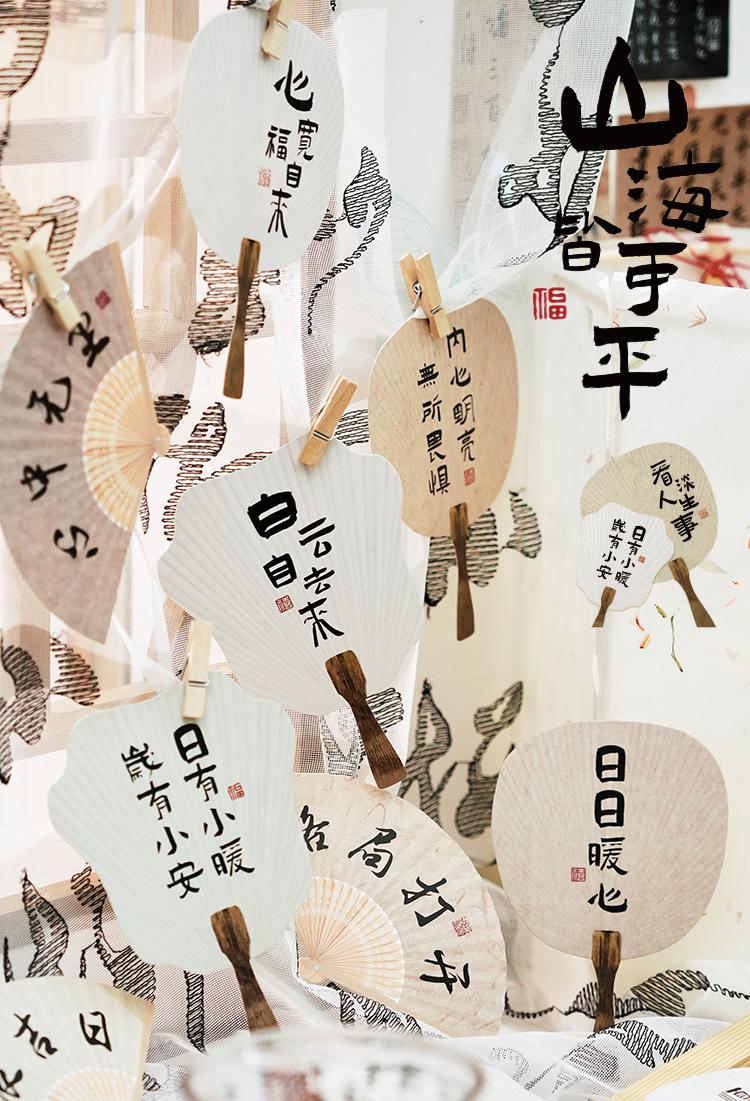 山海皆可平
福
心寬自来福
心中无尘
内心明亮
無所畏惧
白云自去来
看淡人生事
日有小暖
歲有小安
日有小暖
歲有小安
福
格局打开
日日暖心
日吉